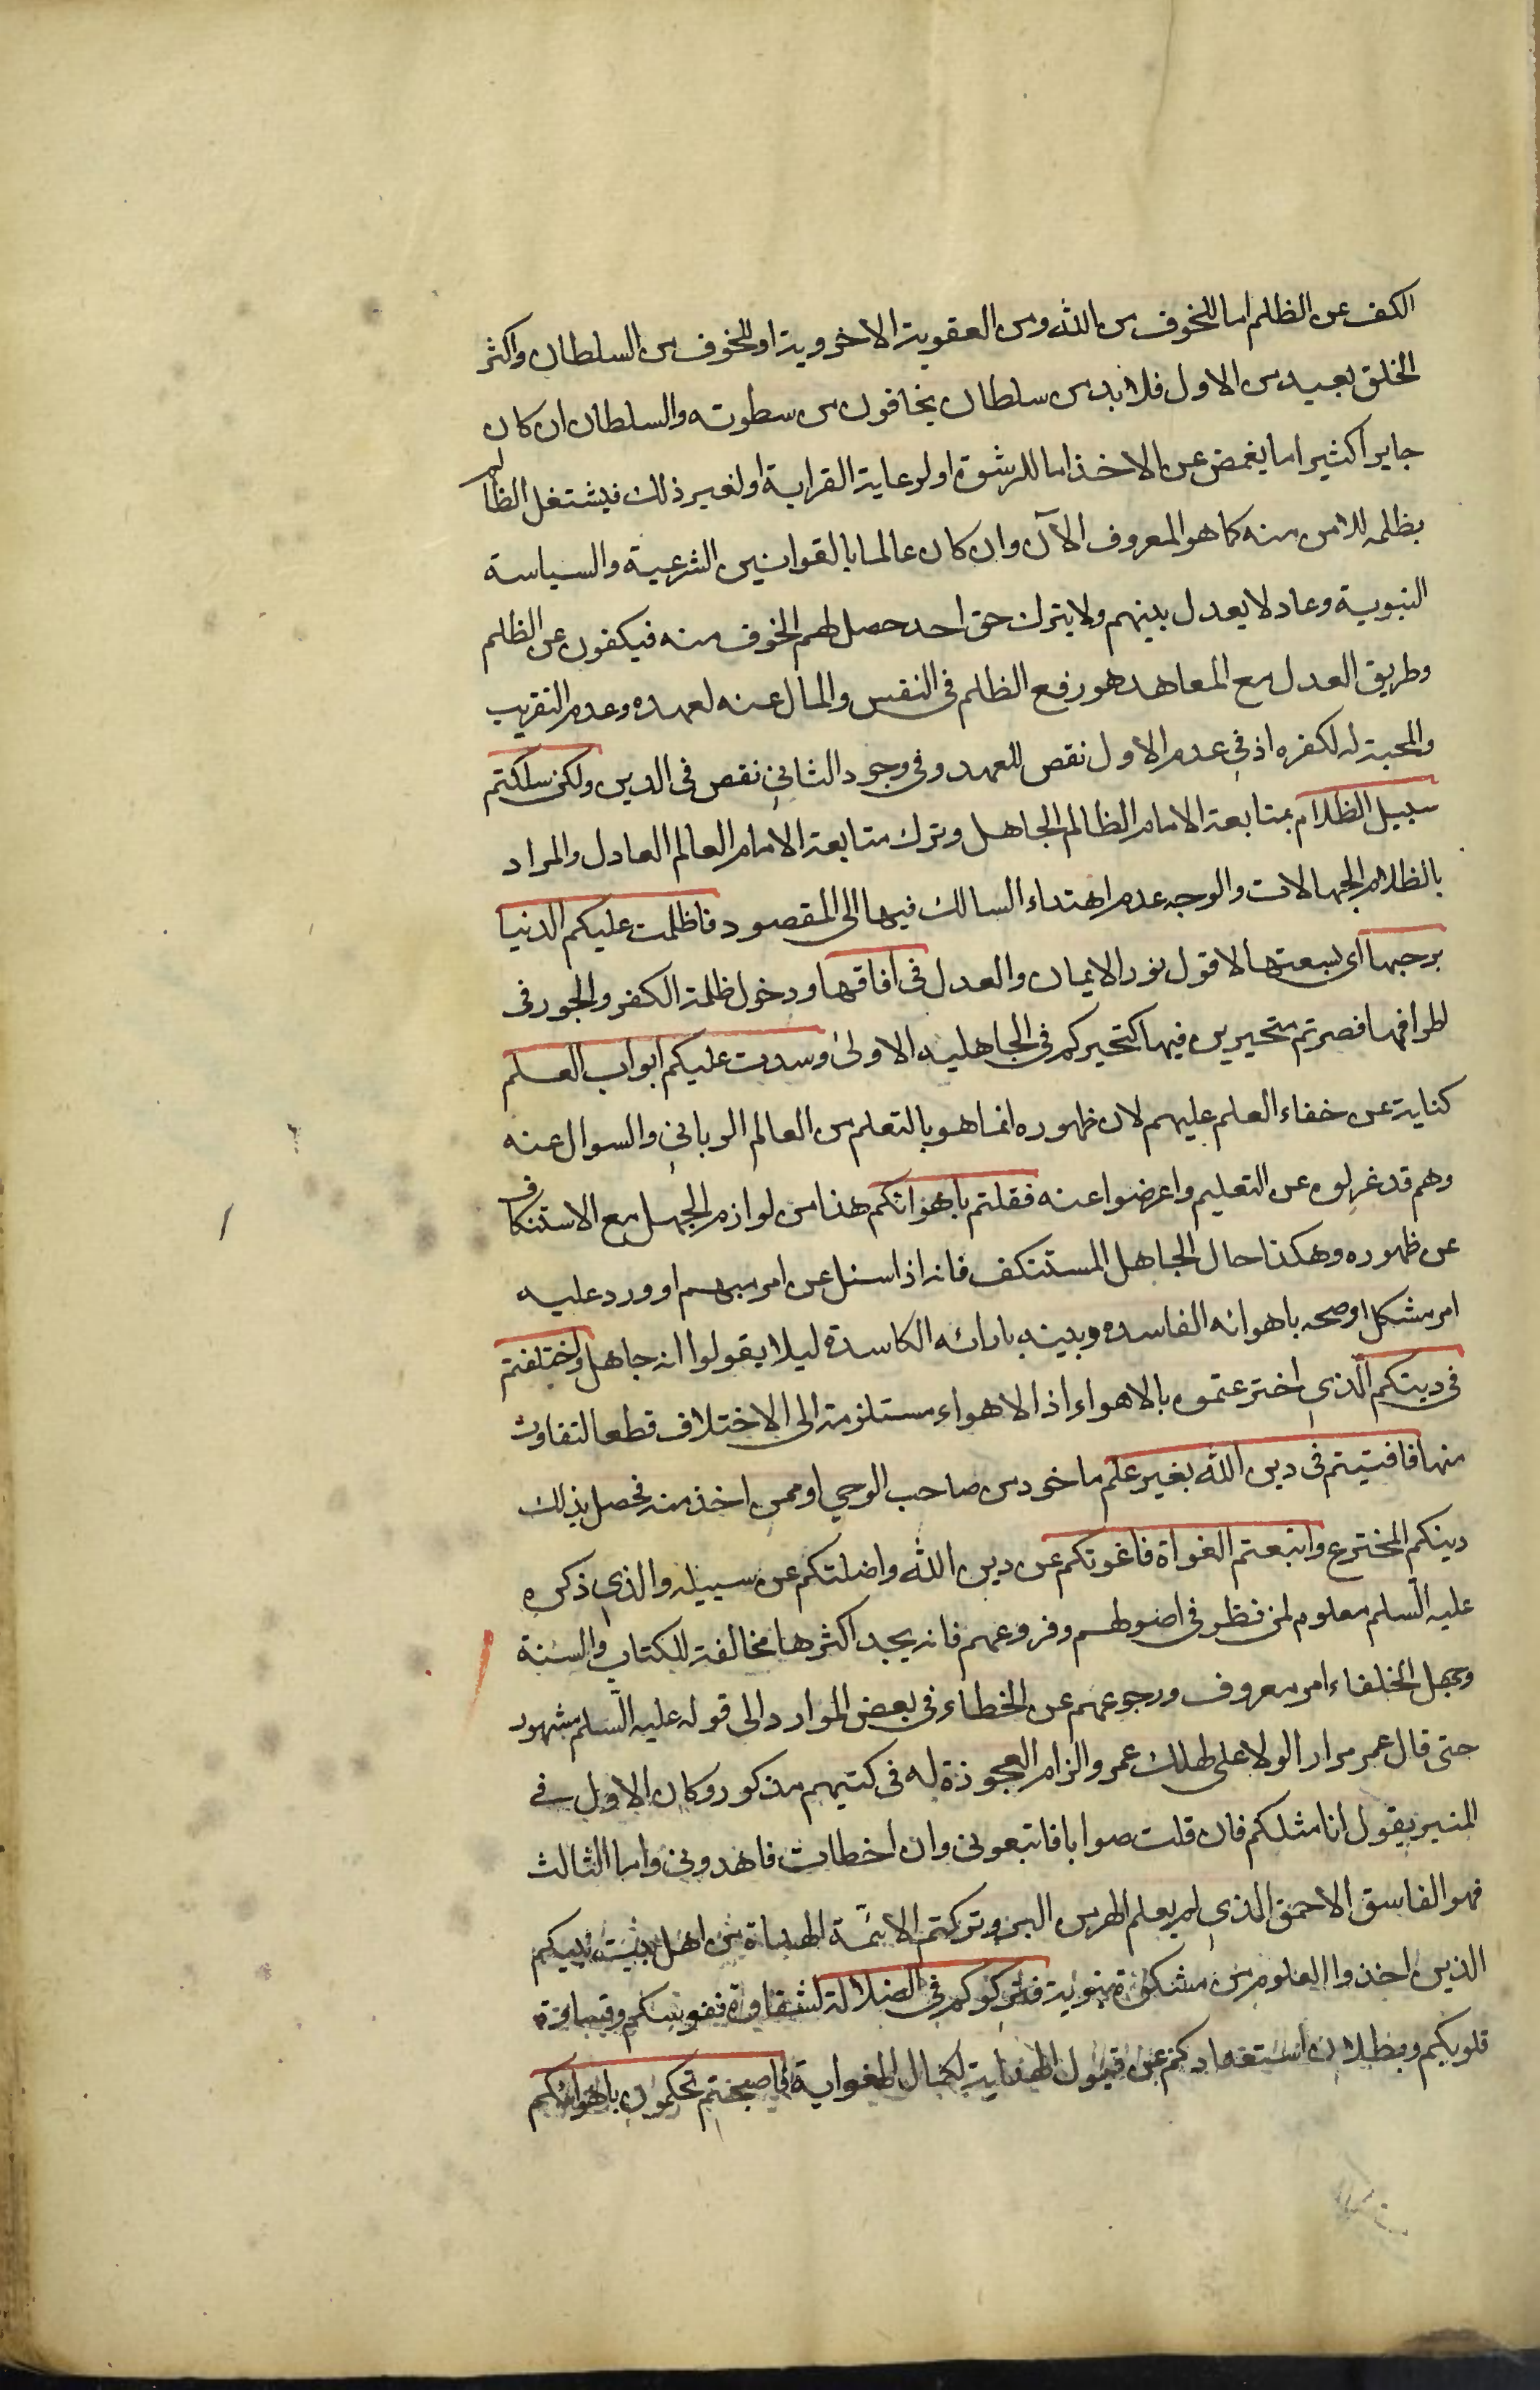 الكف عن الظلم اما للخوف من الله ومن العقوبة الاخروية او للخوف من السلطان واكثر
الخلق بعيد من الاول فلا بد من سلطان يخافون من سطوته والسلطان ان كان
جايرا كثيرا ما يغمض عن الاخذ اما للرشوة او لرعاية القرابة او لغير ذلك فيشتغل الظالم
بظلمه للامن منه كما هو المعروف الآن وان كان عالما بالقوانين الشرعية والسياسة
النبوية وعادلا يعدل بينهم ولا يترك حق احد حصل لهم الخوف منه فيكفون عن الظلم
وطريق العدل مع المعاهد هو رفع الظلم في النفس والمال عنه لعهده وعدم التقريب
والمحبة له لكفره اذ في عدم الاول نقص للعهد وفي وجود الثاني نقص في الدين ولكن سلكتم
سبيل الظلام بمتابعة الامام الظالم الجاهل وترك متابعة الامام العالم العادل والمراد
بالظلام الجهالات والوجه عدم اهتداء السالك فيها الى المقصود فاظلمت عليكم الدنيا
برحبها اى بسعتها لافول نور الايمان والعدل في افاقها ودخول ظلمة الكفر والجور في
اطرافها فصرتم متحيرين فيها كتحيركم في الجاهلية الاولى وسدت عليكم ابواب العلم
كناية عن خفاء العلم عليهم لان ظهوره انما هو بالتعلم من العالم الرباني والسوال عنه
وهم قد عزلوه عن التعليم واعرضوا عنه فقلتم باهوائكم هذا من لوازم الجهل مع الاستنكاف
عن ظهوره وهكذا حال الجاهل المستنكف فانه اذا سئل عن امر مبهم او ورد عليه
امر مشكل اوضحه باهوائه الفاسده وبينه بارائه الكاسدة ليلا يقولوا انه جاهل واختلفتم
في دينكم الذي اخترعتموه بالاهواء اذ الاهواء مستلزمة الى الاختلاف قطعا لتفاوت
منها فافتيتم في دين الله بغير علم ماخوذ من صاحب الوحي او ممن اخذ منه فحصل بذلك
دينكم المخترع واتبعتم الغواة فاغوتكم عن دين الله واضلتكم عن سبيله والذي ذكره
عليه السلم معلوم لمن نظر في اصولهم وفروعهم فانه يجد اكثرها مخالفة للكتاب والسنة
وجهل الخلفاء امر معروف ورجوعهم عن الخطاء في بعض الموارد الى قوله عليه السلم مشهور
حتى قال عمر مرارا لولا على لهلك عمر والزام العجوزة له في كتبهم مذكور وكان الاول في
المنبر يقول انا مثلكم فان قلت صوابا فاتبعوني وان اخطات فاهدوني واما الثالث
فهو الفاسق الاحمق الذي لم يعلم الهر من البر وتركتم الائمة الهداة من اهل بيت نبيكم
الذين اخذوا العلوم من مشكوة نبوية فتركوكم في الضلالة لشقاوة نفوسكم وقساوة
قلوبكم وبطلان استعدادكم عن قبول الهداية لكمال الغواية فاصبحتم تحكمون باهوائكم